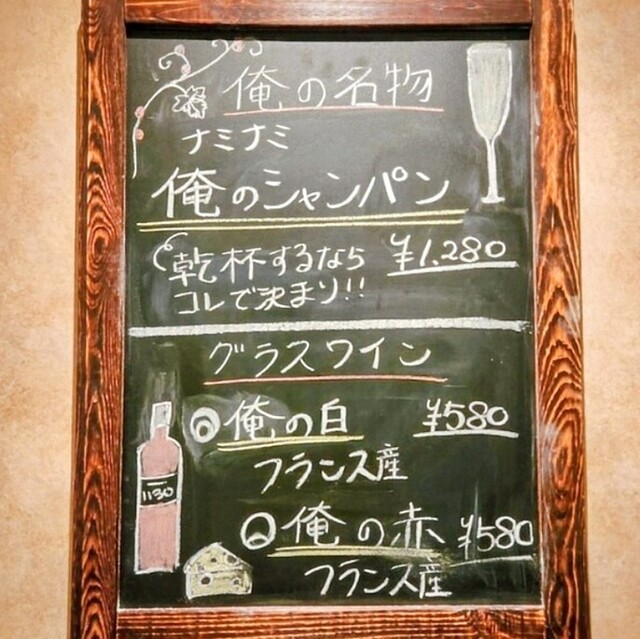 俺の名物
ナミナミ
俺のシャンパン
乾杯するなら ¥1,280
コレで決まり!!
グラスワイン
俺の白 ¥580
フランス産
俺の赤 ¥580
フランス産
1130